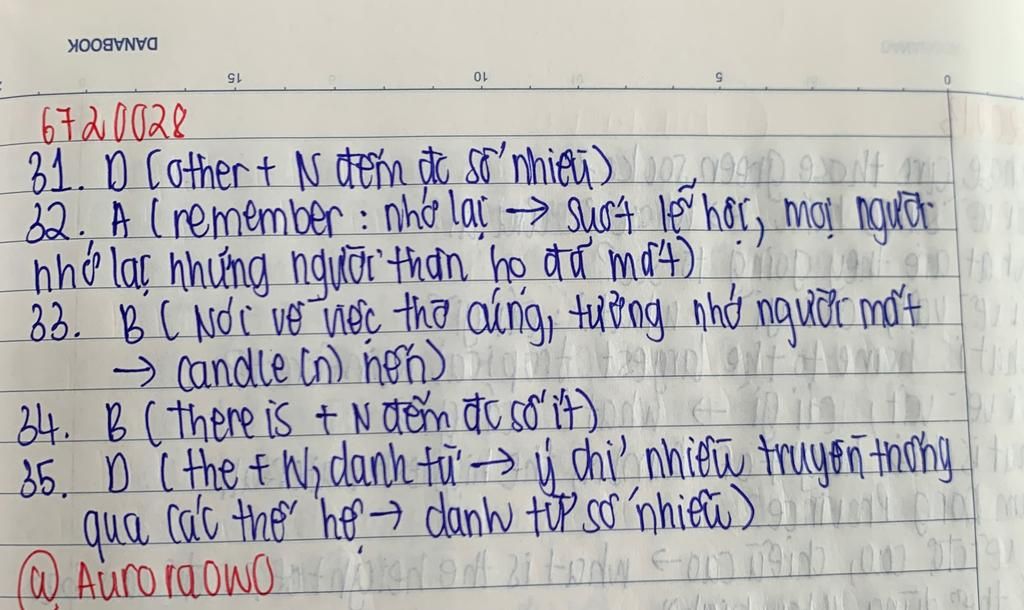 DANABOOK
15 10 5 0
6720028
31. D (other + N đếm đc số nhiều)
32. A (remember : nhớ lại → suốt lễ hội, mọi người
nhớ lại những người thân họ đã mất)
33. B (Nói về việc thờ cúng, tưởng nhớ người mất
→ candle (n) nến)
34. B (there is + N đếm đc số ít)
35. D (the + N, danh từ → ý chỉ nhiều truyền thống
qua các thế hệ → danh từ số nhiều)
@ Auroraowo